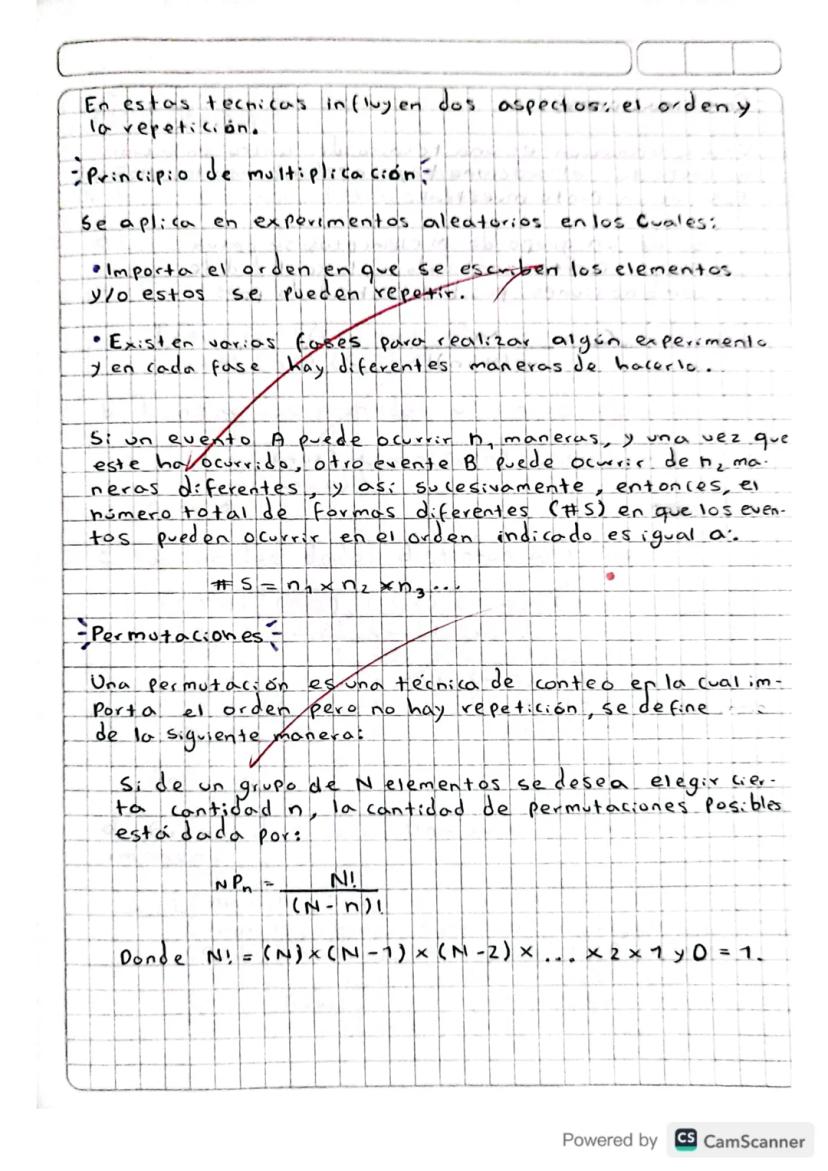 En estas tecnicas influyen dos aspectos: el orden y
la repetición.
Principio de multiplicación
Se aplica en experimentos aleatorios en los cuales:
• Importa el orden en que se escriben los elementos
y/o estos se pueden repetir.
• Existen varias fases para realizar algún experimento
y en cada fase hay diferentes maneras de hacerlo.
Si un evento A puede ocurrir n₁ maneras, y una vez que
este ha ocurrido, otro evento B puede ocurrir de n₂ ma-
neras diferentes, y así sucesivamente, entonces, el
número total de formas diferentes (#S) en que los even-
tos pueden ocurrir en el orden indicado es igual a:
# S = n₁ x n₂ x n₃...
Permutaciones
Una permutación es una técnica de conteo en la cual im-
porta el orden pero no hay repetición, se define
de la siguiente manera:
Si de un grupo de N elementos se desea elegir cier-
ta cantidad n, la cantidad de permutaciones posibles
está dada por:
NPn = N!
(N-n)!
Donde N! = (N)x(N-1)x(N-2)x... x2x1 y 0 = 1.
Powered by CS CamScanner